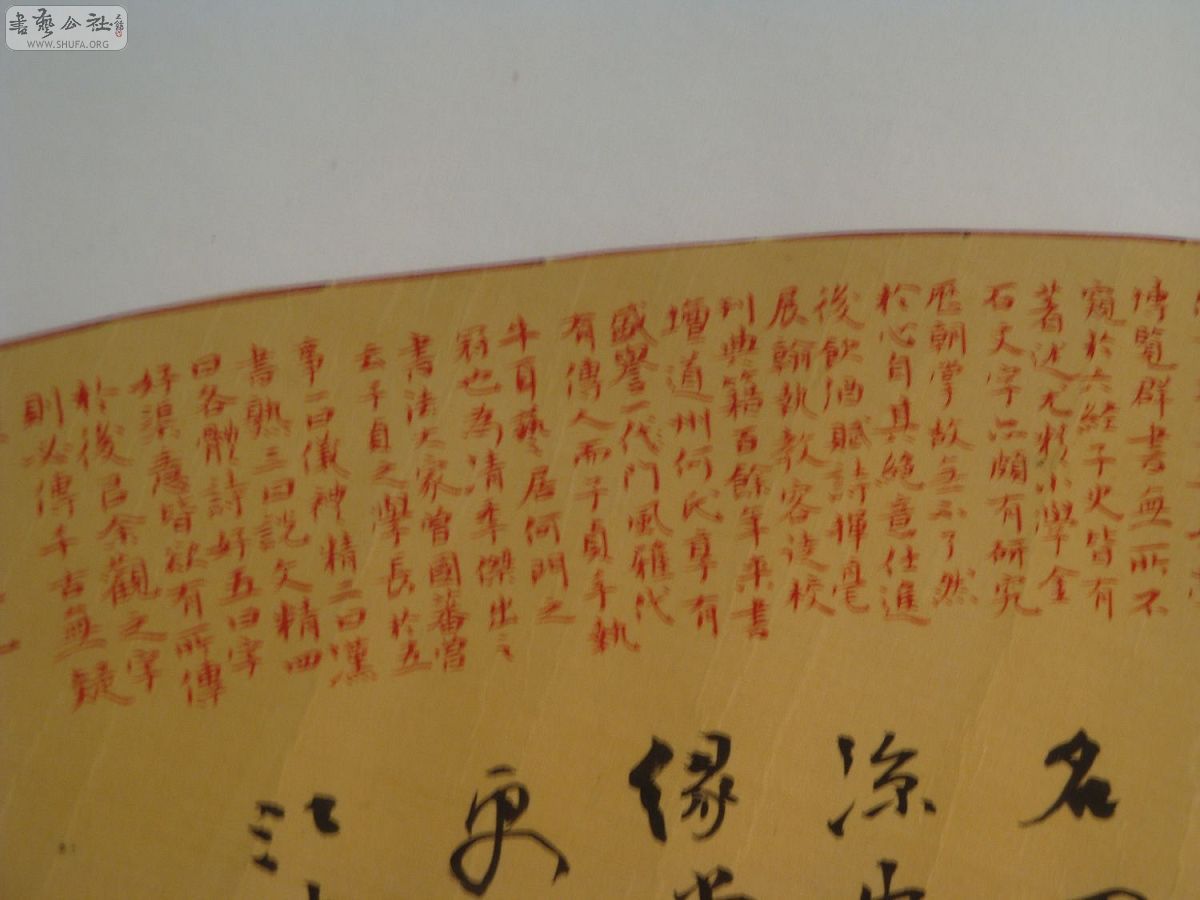 書藝公社
WWW.SHUFA.ORG
博覽群書無所不
窺於六經子史皆有
著述尤精小學金
石文字亦頗有研究
歷朝掌故無不了然
於心自其絕意仕進
後飲酒賦詩揮毫
展翰執教客徒校
刊典籍百餘年來書
壇道州何氏享有
盛譽一代門風雅代
有傳人而子貞手執
牛耳藝居何門之
冠也為清季傑出之
書法大家曾國藩嘗
云子貞之學長於五
事一曰儀神精二曰漢
書熟三曰說文精四
曰各體詩好五曰字
好渠意皆欲有所傳
於後以余觀之字
則必傳千古無疑
名
涼
緣
更
江